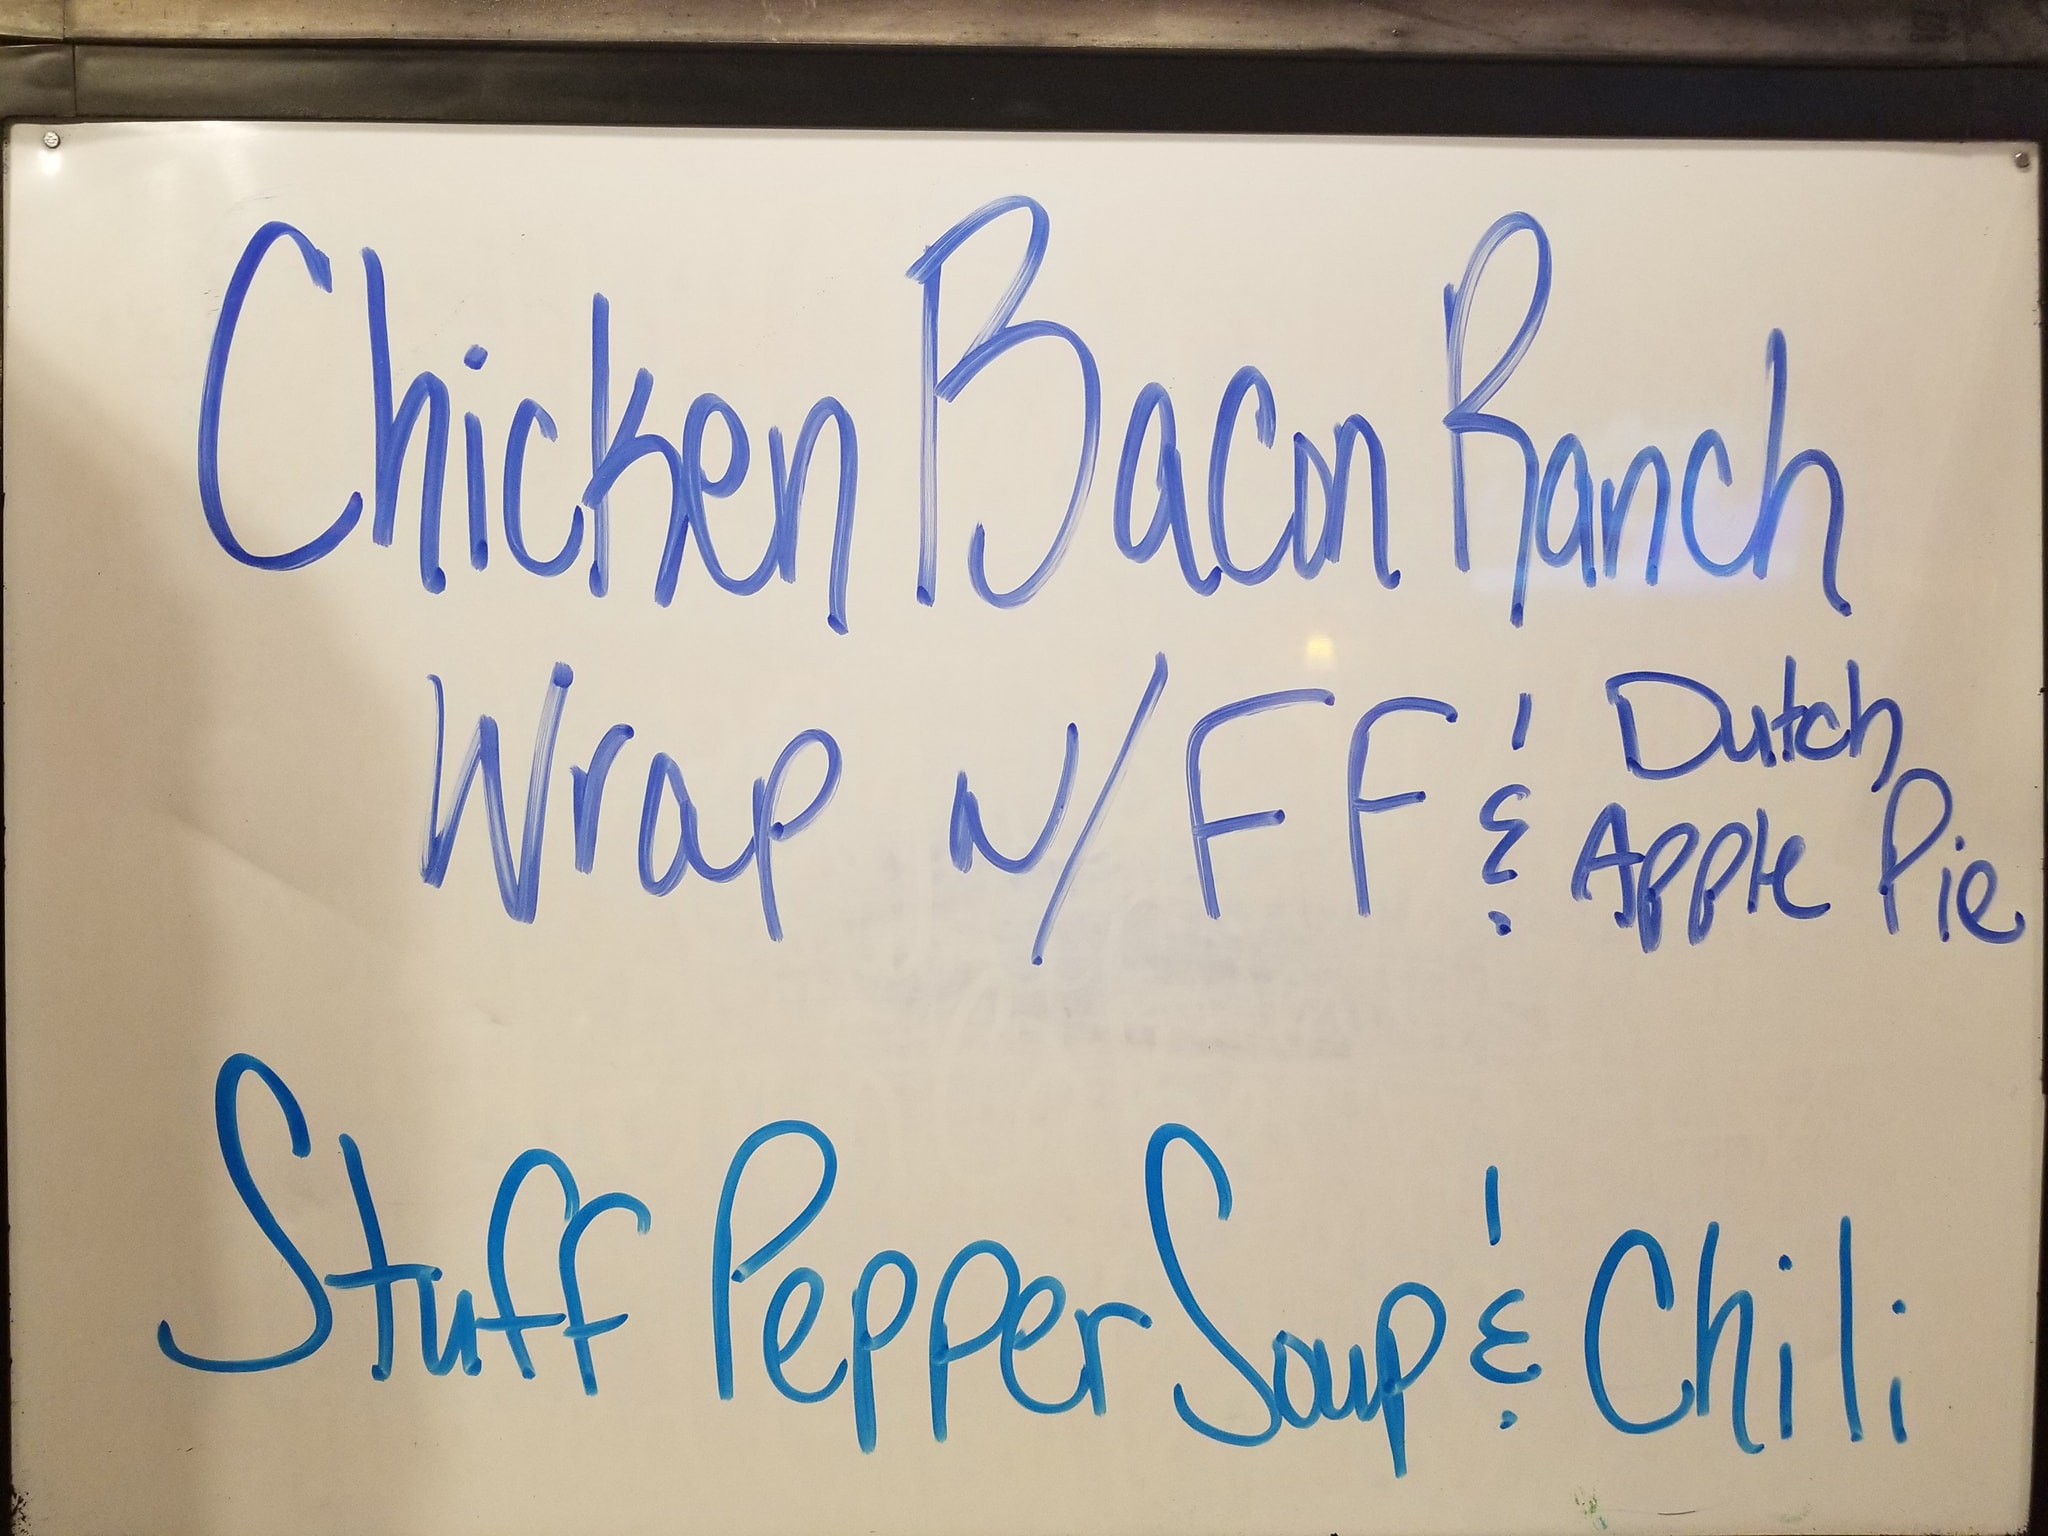 Chicken Bacon Ranch
Wrap w/ FF & Dutch
Apple Pie
Stuff Pepper Soup & Chili